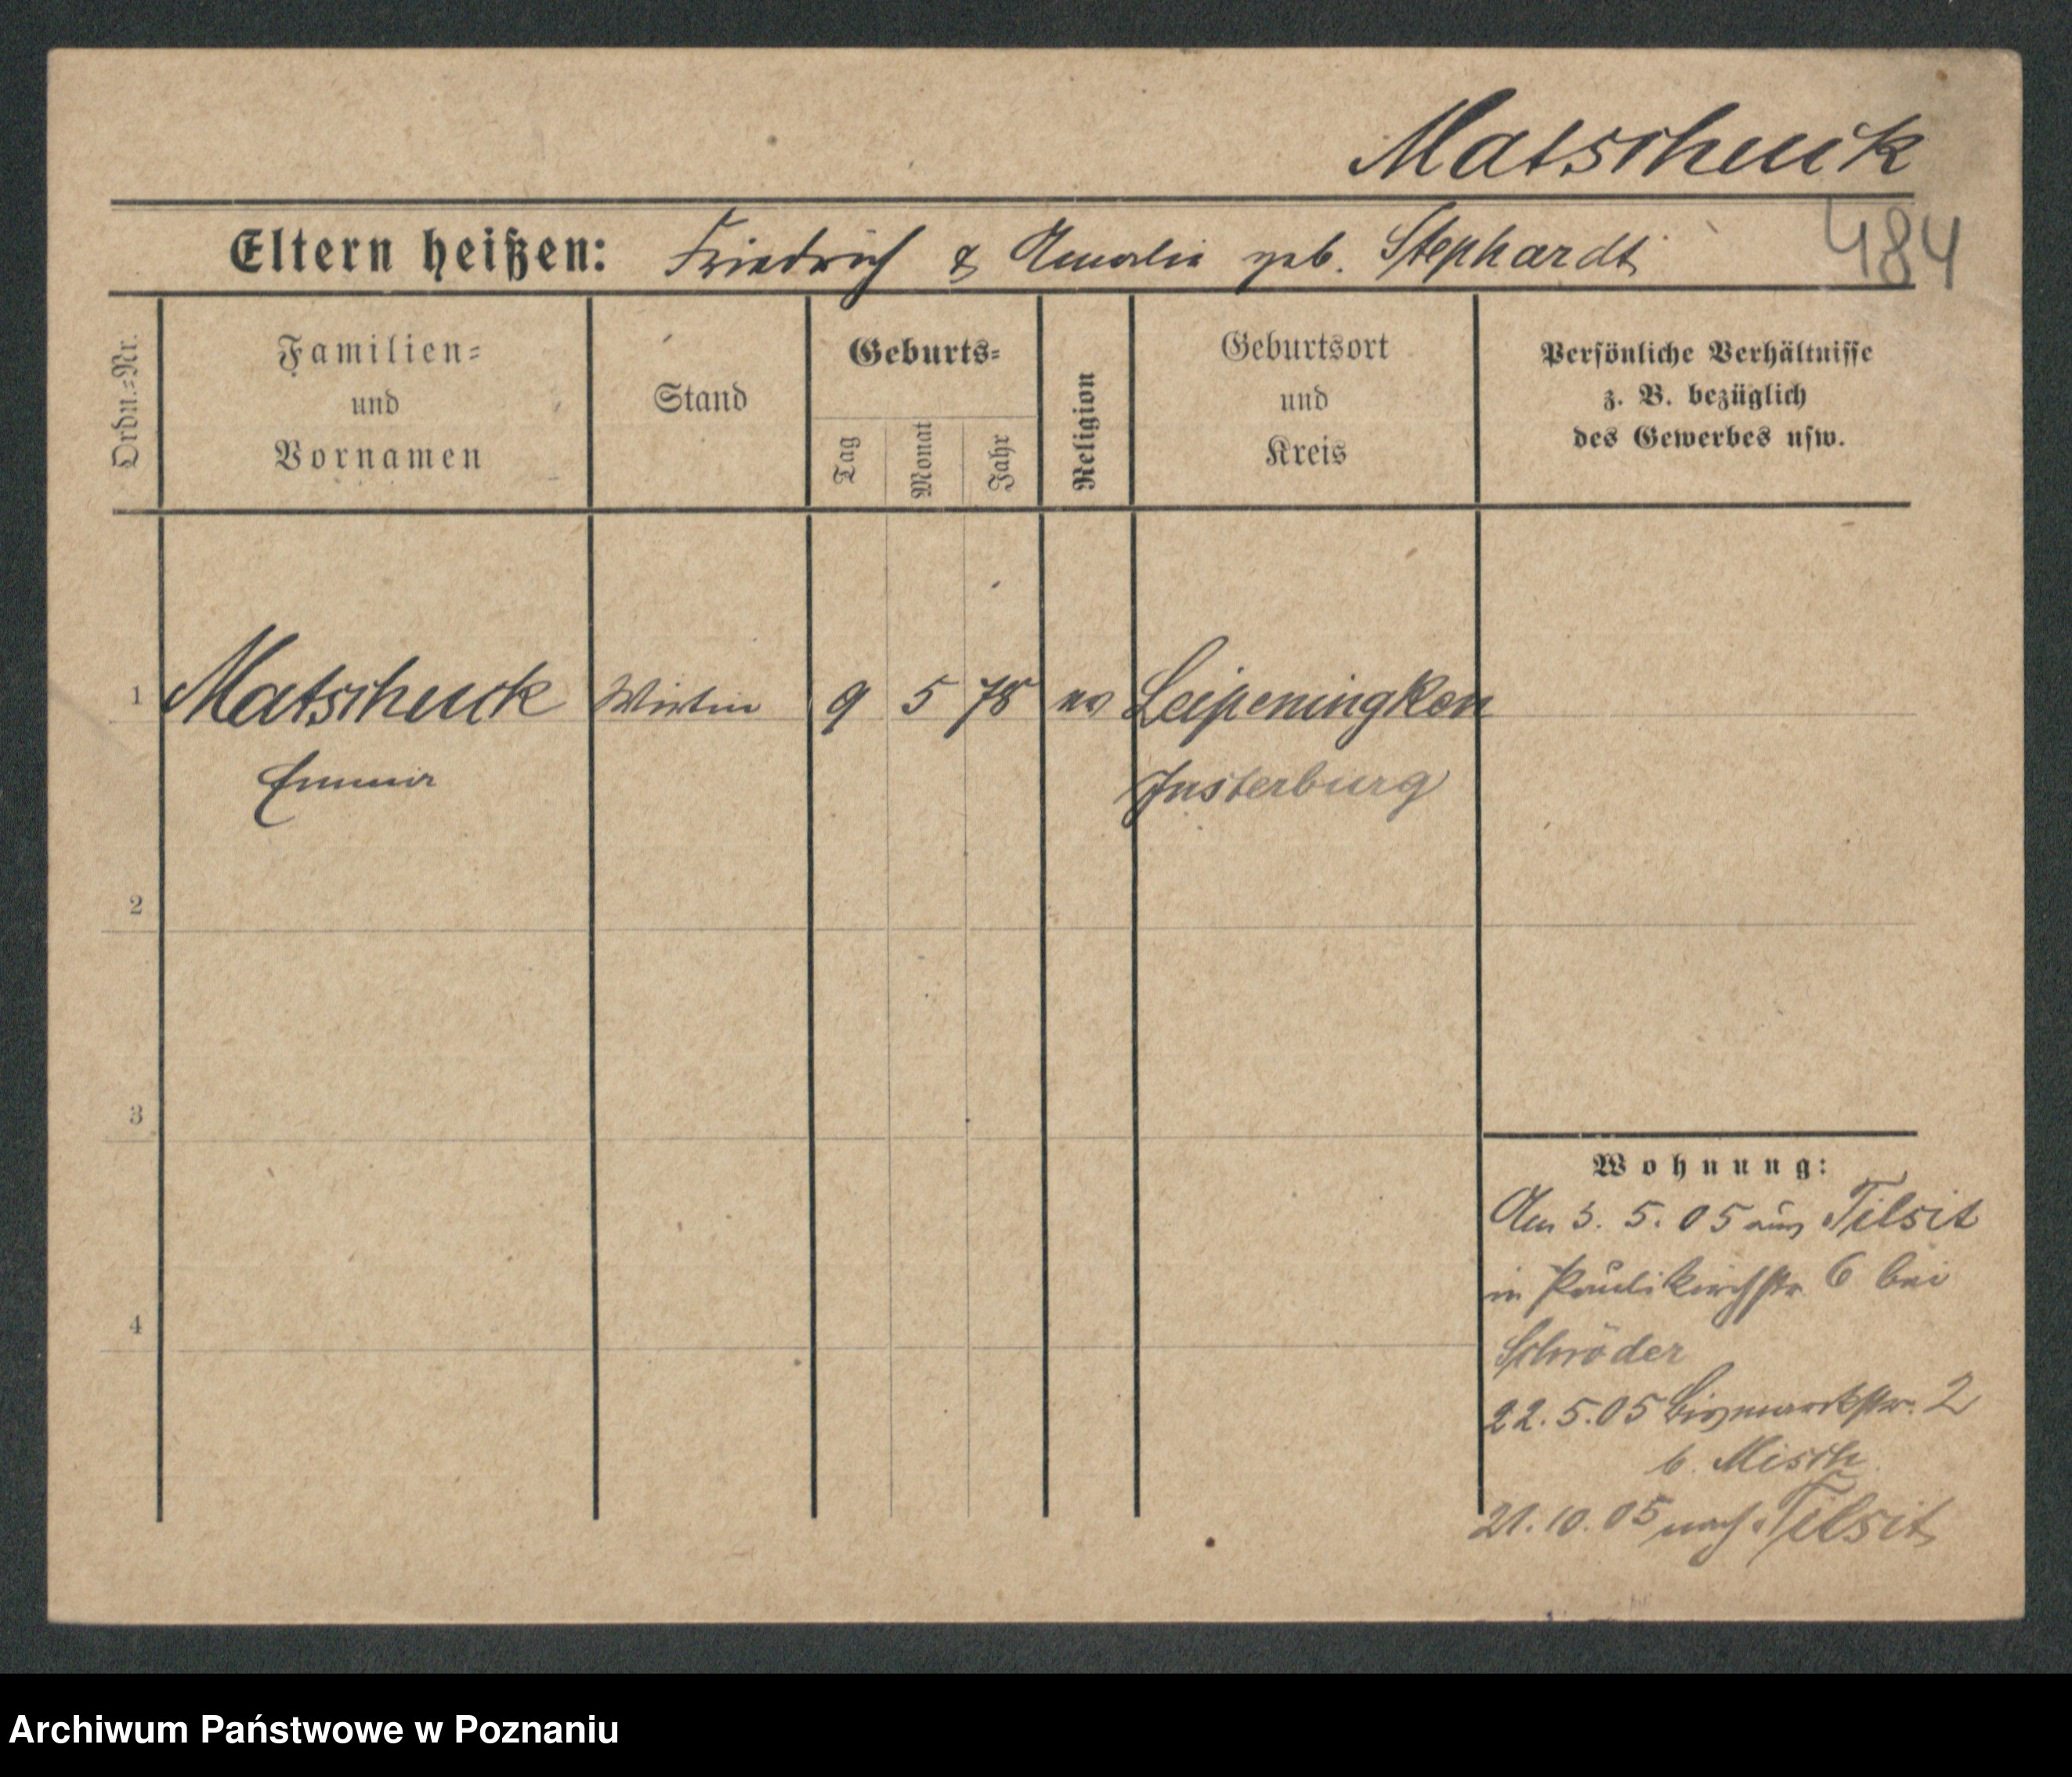 Matschuck
Eltern heißen: Friedrich & Amalie geb. Stephardt
484
Ordn.=Nr.
Familien=
und
Vornamen
Stand
Geburts=
Tag
Monat
Jahr
Religion
Geburtsort
und
Kreis
Persönliche Verhältnisse
z. B. bezüglich
des Gewerbes usw.
1 Matschuck Wirtin 9 5 78 ev Leipeningken
Emma Insterburg
2
3
4
Wohnung:
Am 3. 5. 05 aus Tilsit
in Paulikirchstr 6 bei
Schröder
22. 5. 05 Bismarckstr. 2
b. Misch
21. 10. 05 nach Tilsit
Archiwum Państwowe w Poznaniu